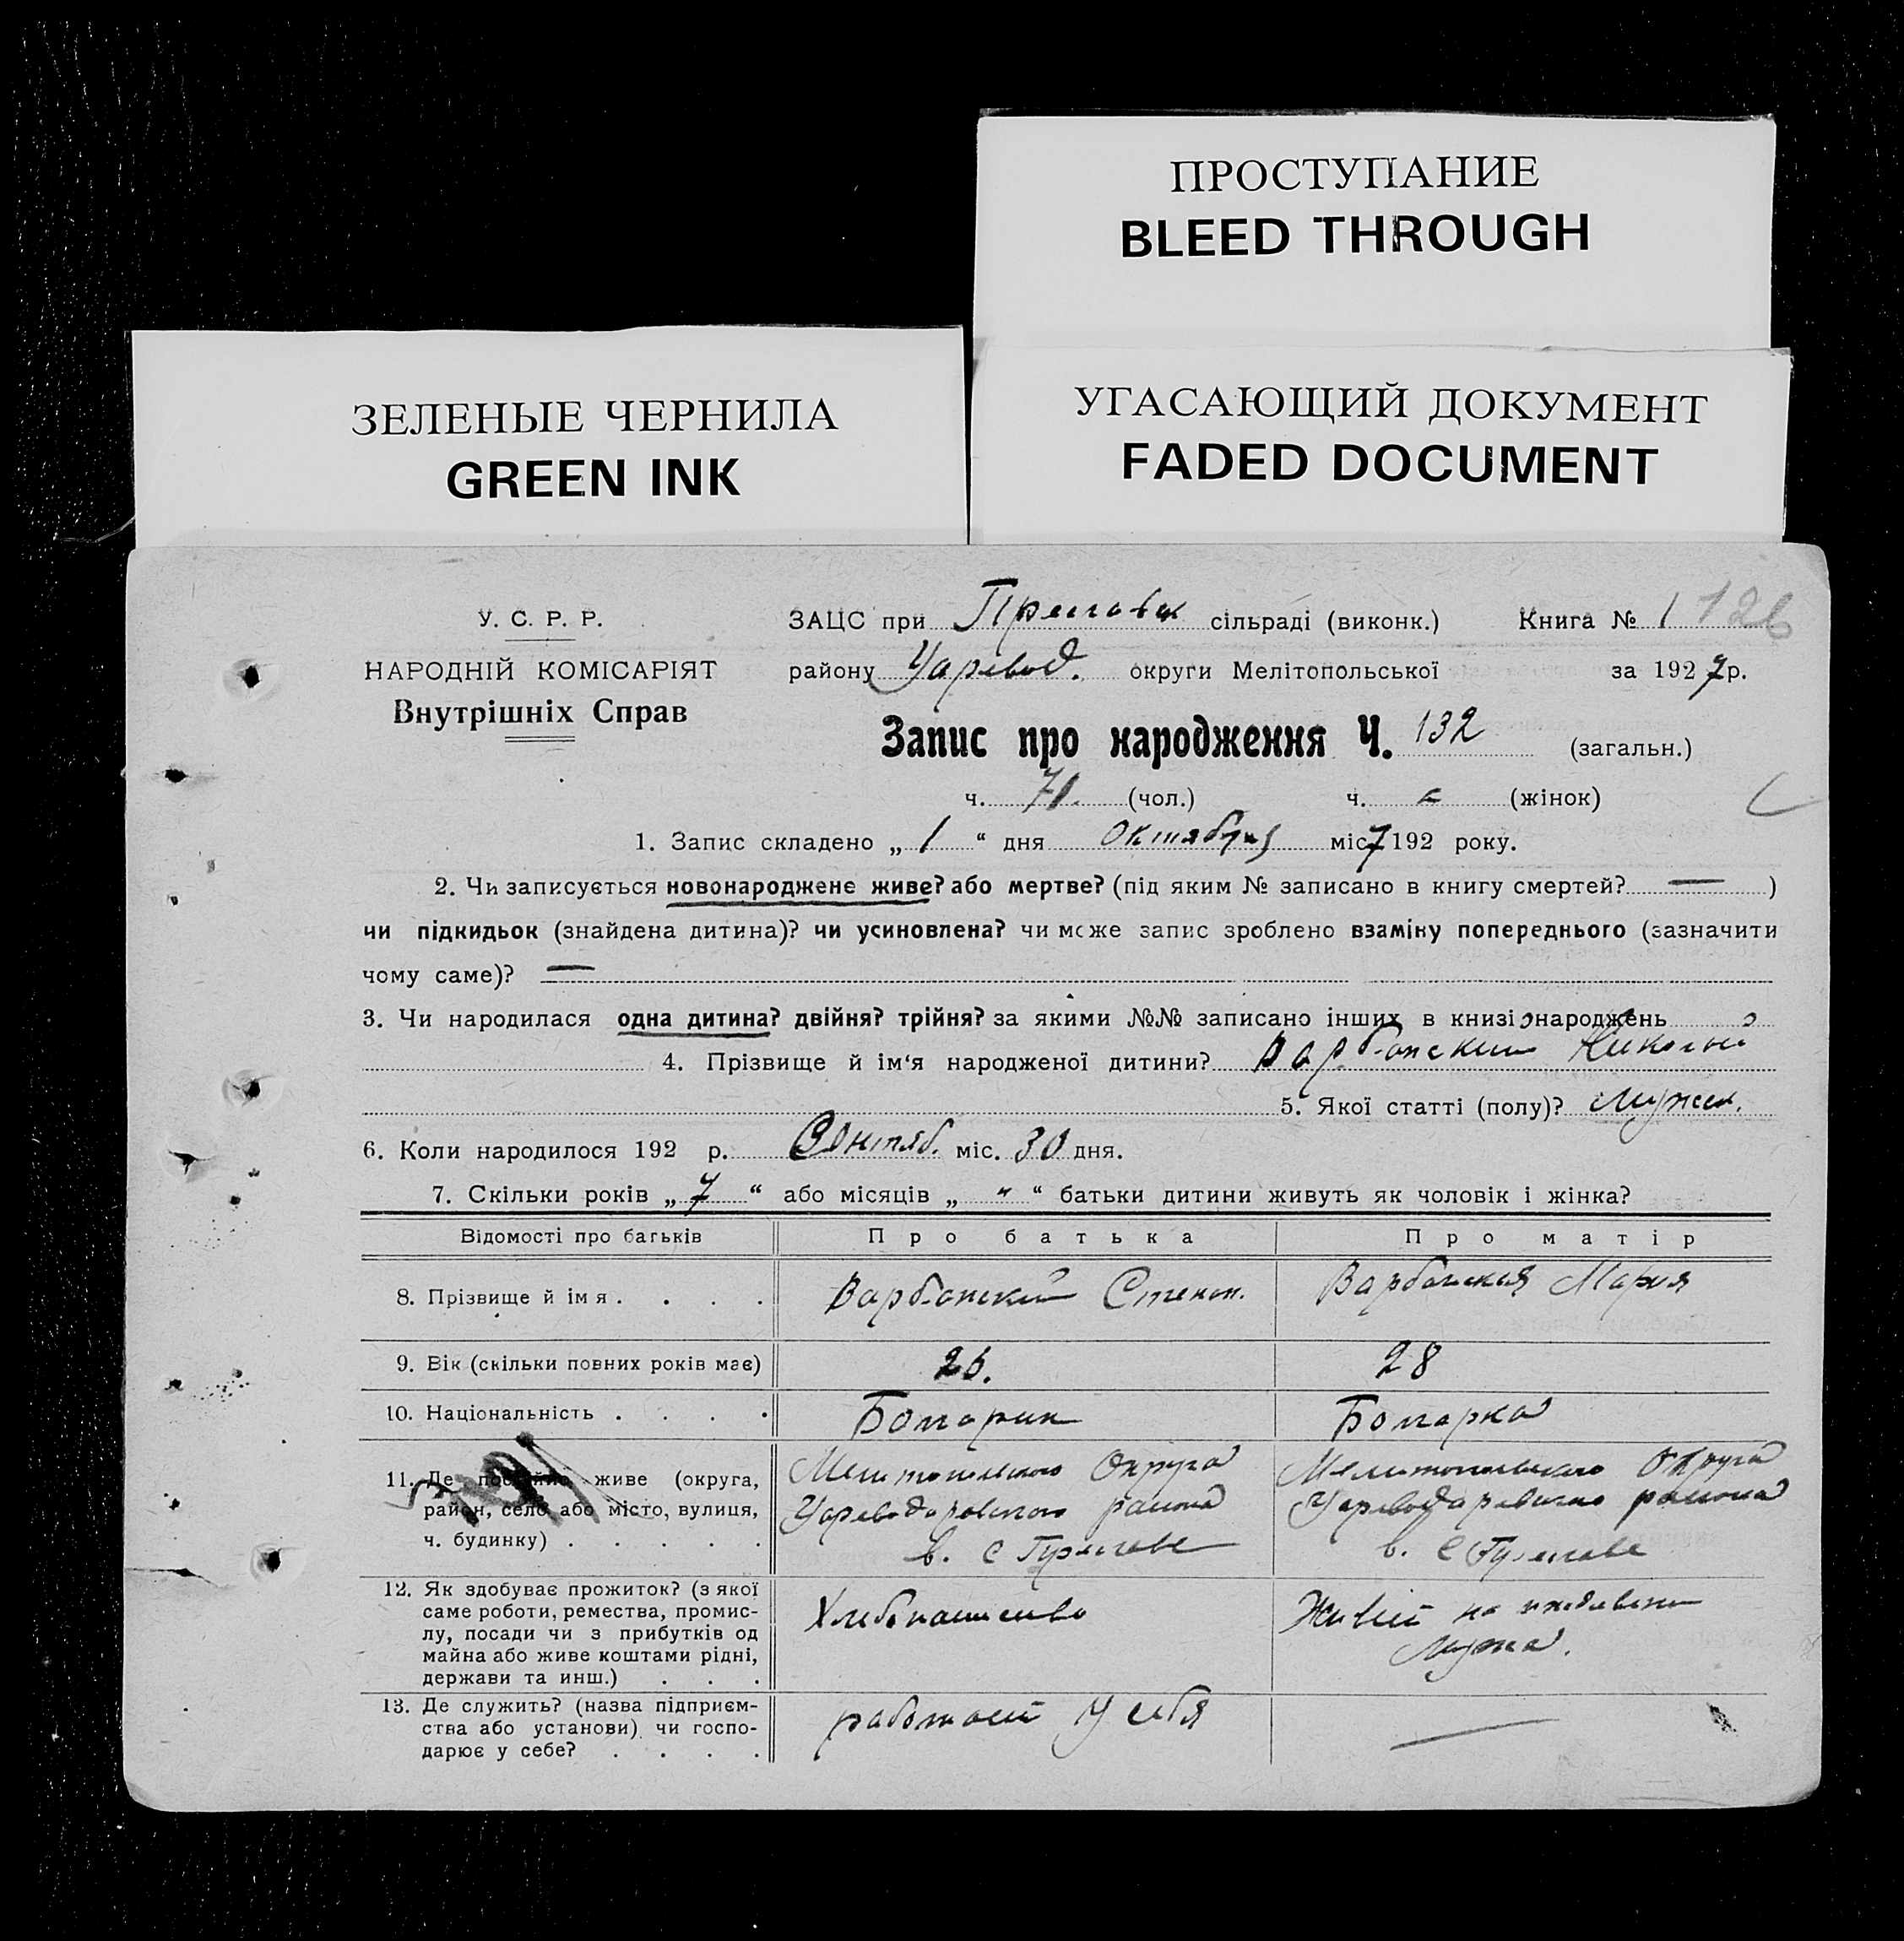 ПРОСТУПАНИЕ
BLEED THROUGH
ЗЕЛЕНЫЕ ЧЕРНИЛА
GREEN INK
УГАСАЮЩИЙ ДОКУМЕНТ
FADED DOCUMENT
У. С. Р. Р.
НАРОДНІЙ КОМІСАРІЯТ
Внутрішніх Справ
ЗАЦС при сільраді (виконк.) Книга № 1 126
району Царевод. округи Мелітопольської за 1927 р.
Запис про народження Ч. 132 (загальн.)
ч. 71. (чол.) ч. (жінок)
1. Запис складено „ 1 “ дня Октября міс 7 192 року.
2. Чи записується новонароджене живе? або мертве? (під яким № записано в книгу смертей? — )
чи підкидьок (знайдена дитина)? чи усиновлена? чи може запис зроблено взаміну попереднього (зазначити
чому саме)? —
3. Чи народилася одна дитина? двійня? трійня? за якими №№ записано інших в книзі народжень
4. Прізвище й ім‘я народженої дитини? Варбанский Николай
5. Якої статті (полу)? мужск.
6. Коли народилося 192 р. Сентяб. міс. 30 дня.
7. Скільки років „ 7 “ або місяців „ " “ батьки дитини живуть як чоловік і жінка?
Відомості про батьків Про батька Про матір
8. Прізвище й імя . . . . Варбанский Степан. Варбанская Мария
9. Вік (скільки повних років має) 26. 28
10. Національність . . . . Болгарин Болгарка
11. Де постійно живе (округа, Мелитопольского Округа Мелитопольского Округа
район, село або місто, вулиця, Цареводаровского района Цареводаровского района
ч. будинку) . . . . . в. с в. с
12. Як здобуває прожиток? (з якої
саме роботи, ремества, промис-
лу, посади чи з прибутків од
майна або живе коштами рідні,
держави та инш.) . . .
Хлебопашество
Живет на иждевении
мужа.
13. Де служить? (назва підприєм-
ства або установи) чи госпо-
дарює у себе? . . . .
работает у себя
—